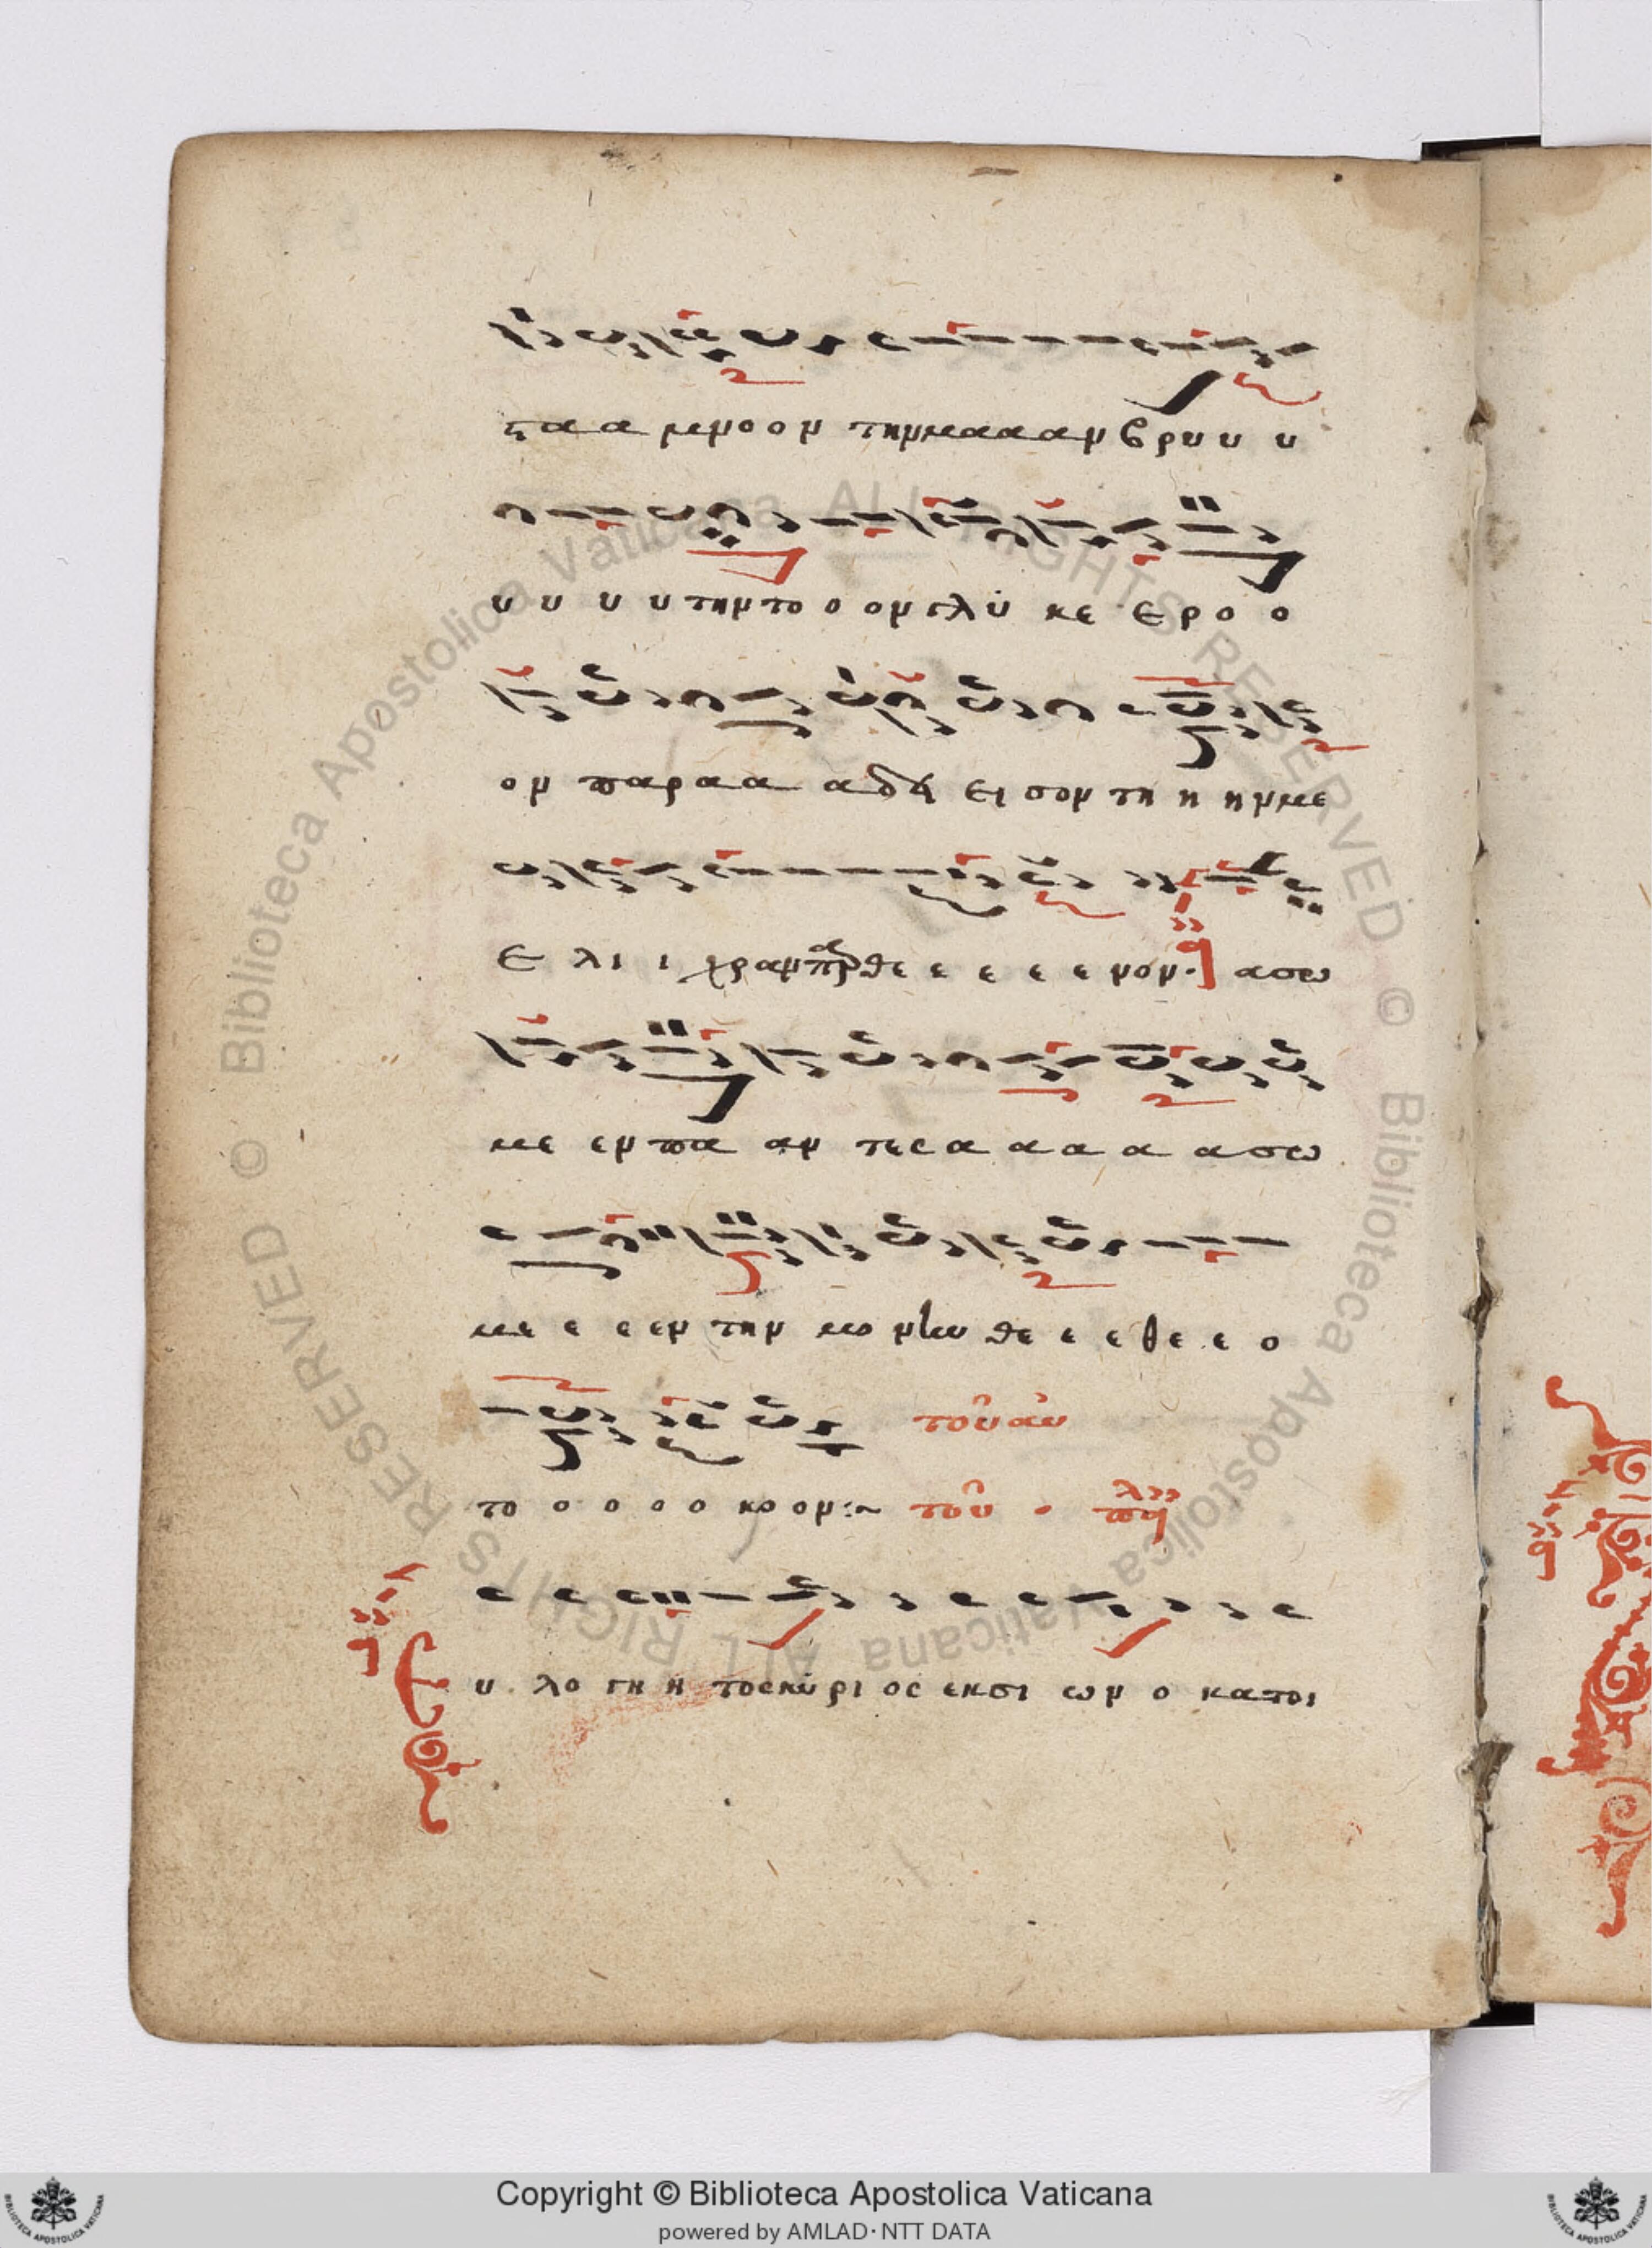 ταα μενοον τηνκααανβρυυ υ
υ υ υ υ τηντο ο ονγλυ κε ε ρο ο
ον παραα αδει εισον τη η ηνμε
ε λι ι χραν παρθε ε ε ε ε νον· ασω
με εν πα αν τεσα α α α ασω
με ε ε εν την μο νην θε ε ε θε ε ο
τοῦ αὐ
το ο ο ο ο κο ον:~ τοῦ
Ευ λο γη η τοσκύρι οσ εκσι ων ο κατοι
© Biblioteca Apostolica Vaticana ALL RIGHTS RESERVED
© Biblioteca Apostolica Vaticana ALL RIGHTS RESERVED
Copyright © Biblioteca Apostolica Vaticana
powered by AMLAD·NTT DATA